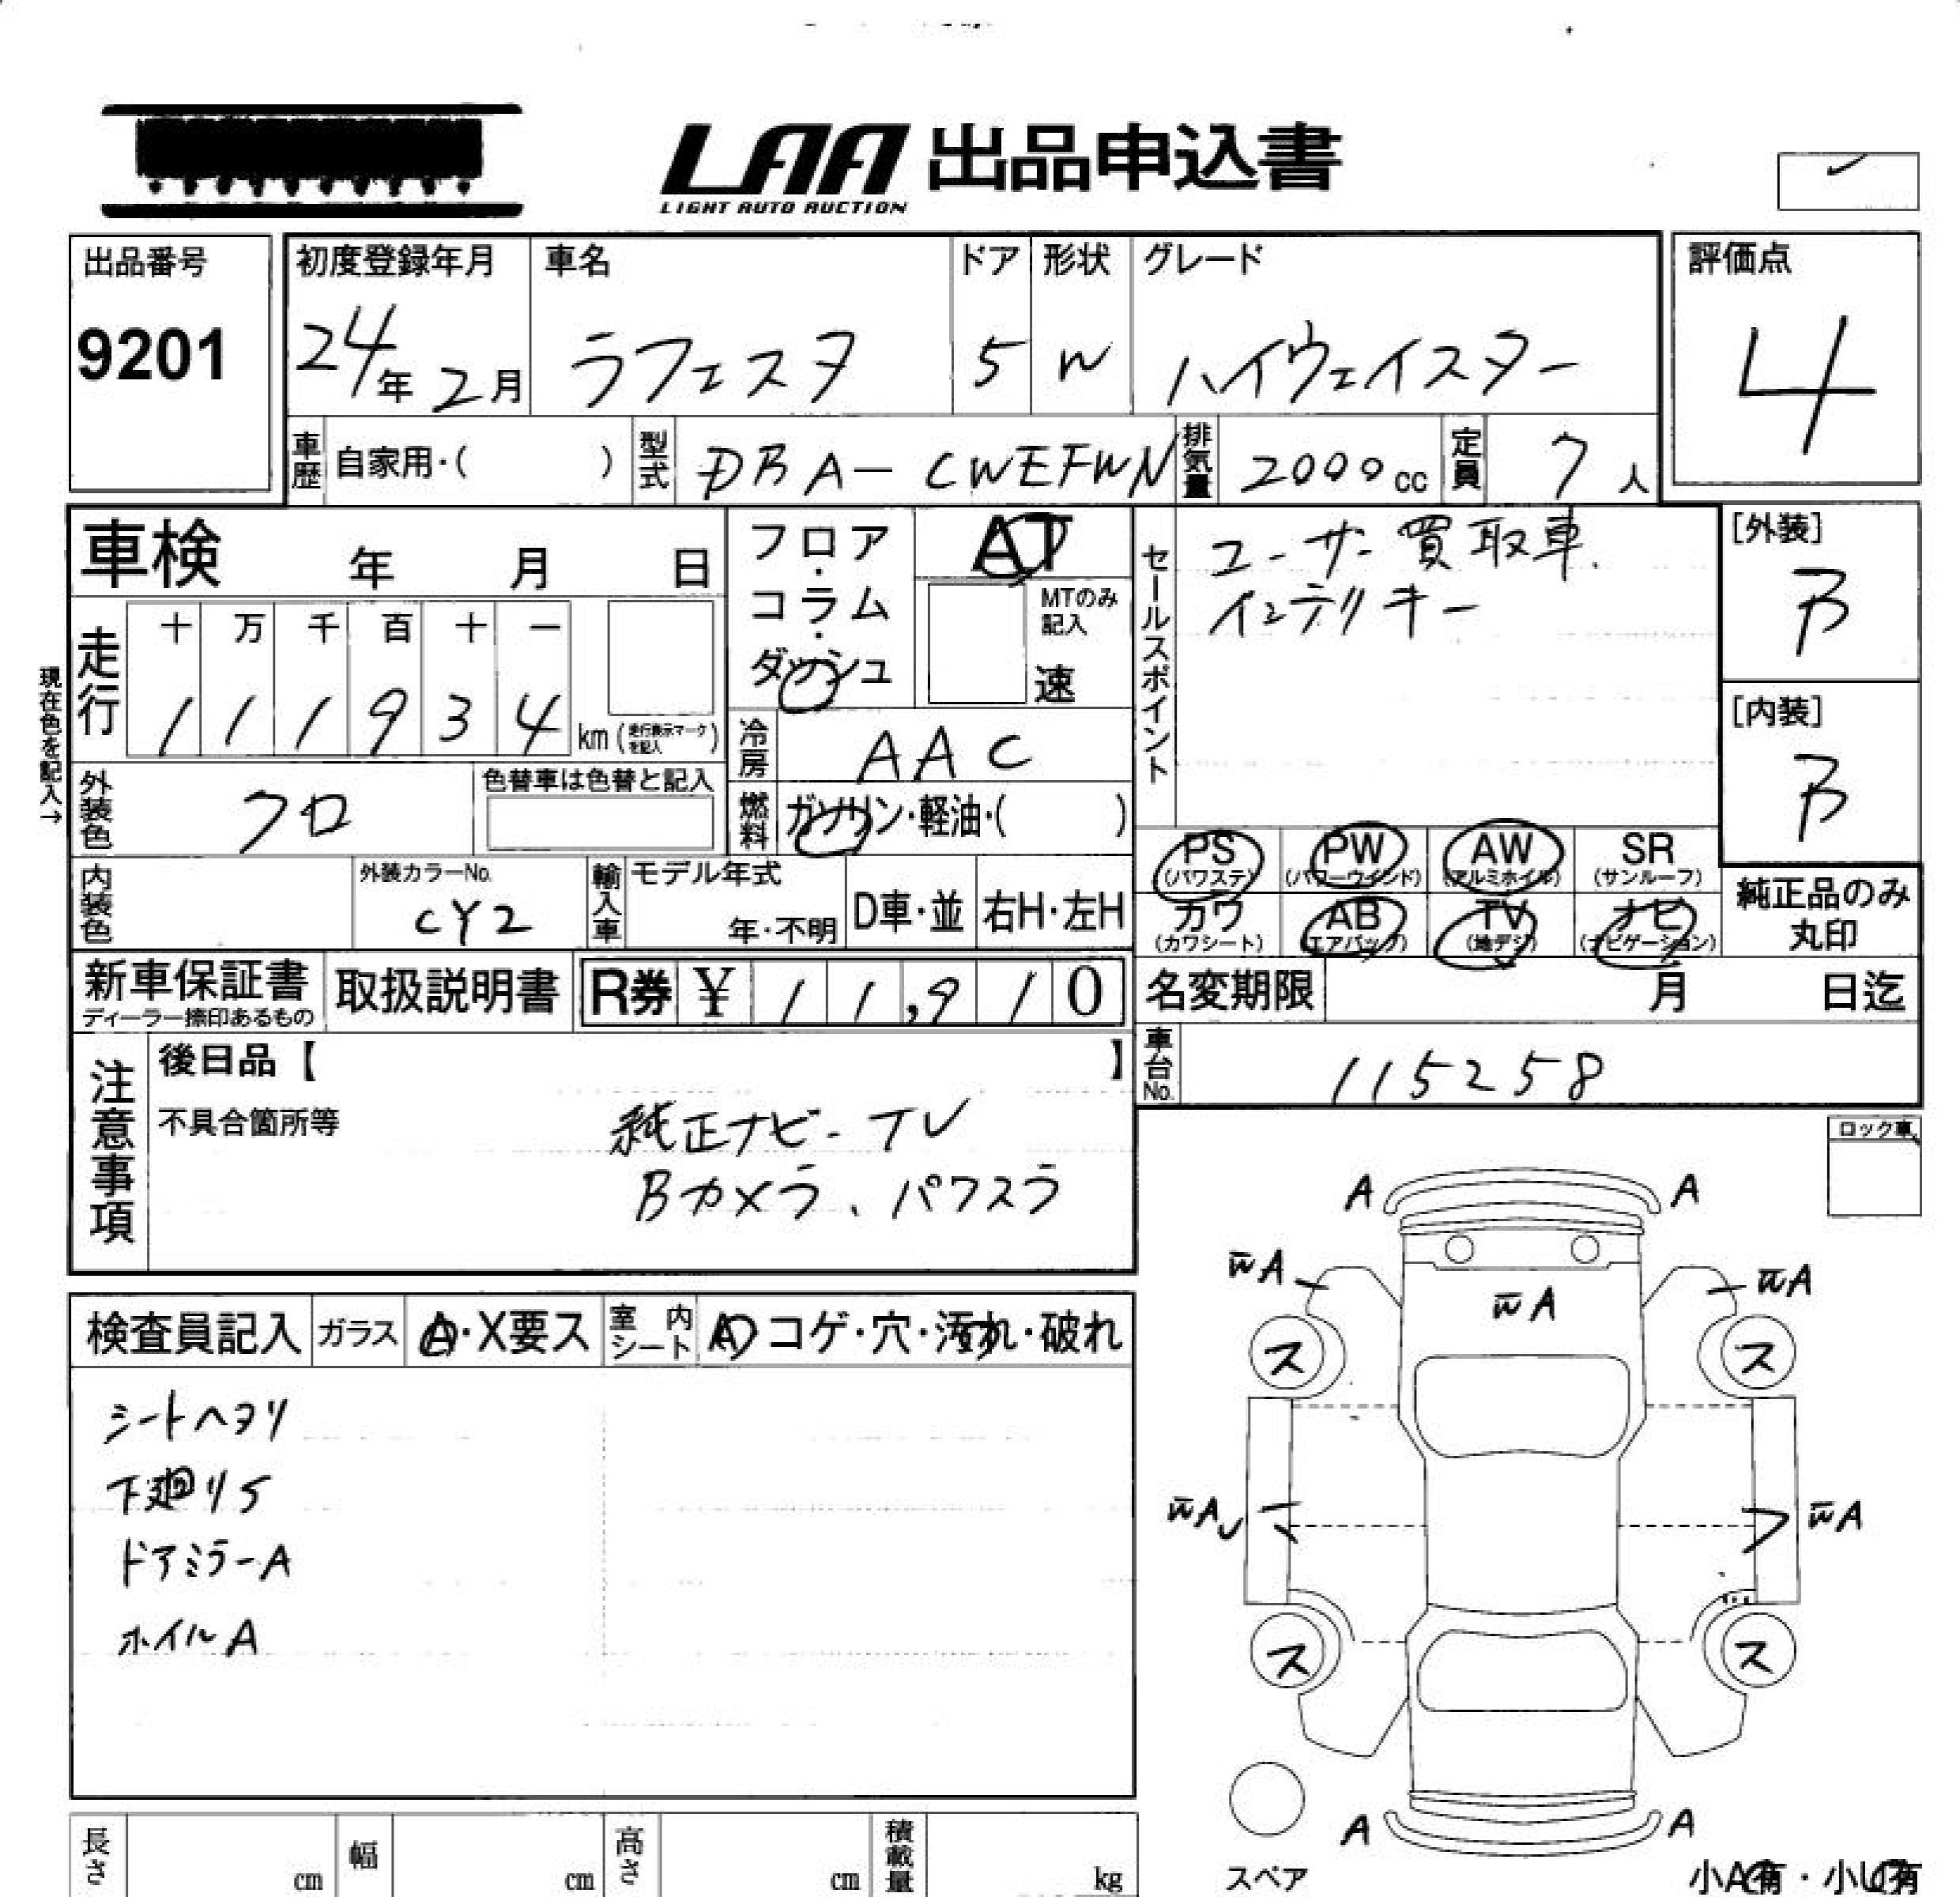 LAA 出品申込書
LIGHT AUTO AUCTION
出品番号
9201
初度登録年月
24年 2月
車名
ラフェスタ
ドア
5
形状
W
グレード
ハイウェイスター
評価点
4
車歴 自家用・( )
型式 DBA-CWEFWN
排気量 2000cc
定員 7人
車検 年 月 日
フロア・コラム・ダッシュ
AT
MTのみ記入
速
セールスポイント
ユーザー買取車.
インテリキー
[外装]
B
[内装]
B
現在色を記入→
走行
十 万 千 百 十 一
1 1 1 9 3 4 km (走行表示マークを記入)
冷房 AAC
外装色 クロ
色替車は色替と記入
燃料 ガソリン・軽油・( )
内装色
外装カラーNo.
CY2
輸入車
モデル年式
年・不明
D車・並
右H・左H
PS (パワステ)
PW (パワーウインド)
AW (アルミホイル)
SR (サンルーフ)
カワ (カワシート)
AB (エアバッグ)
TV (地デジ)
ナビ (ナビゲーション)
純正品のみ
丸印
新車保証書
ディーラー捺印あるもの
取扱説明書
R券 ¥ 11,910
名変期限 月 日迄
車台No. 115258
注意事項
後日品【 】
不具合箇所等
純正ナビ-TV
Bカメラ、パワスラ
ロック車
検査員記入
ガラス A・X要ス
室内シート A コゲ・穴・汚れ・破れ
シートヘタリ
下廻りS
ドアミラーA
ホイルA
A A
w̄A w̄A w̄A
ス ス
w̄A w̄A
ス ス
A A
スペア
小A有・小U有
長さ cm
幅 cm
高さ cm
積載量 kg